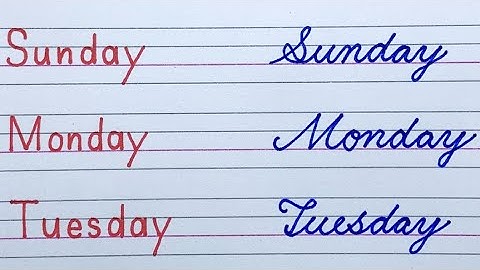 Sunday Sunday
Monday Monday
Tuesday Tuesday